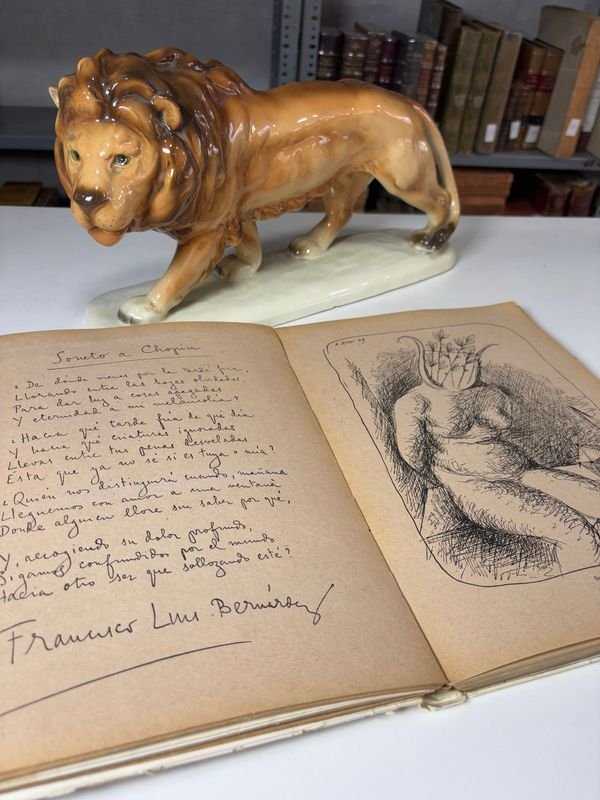 Soneto a Chopin
¿De dónde vienes por la tarde fría,
Llorando entre las hojas olvidadas,
Para dar luz a cosas apagadas
Y eternidad a mi melancolía?
¿Hacia qué tarde fría de qué día
Y hacia qué criaturas ignoradas
Llevas entre tus penas desveladas
Esta que ya no sé si es tuya o mía?
¿Quién nos distinguirá cuando, mañana
Lleguemos con amor a una ventana
Donde alguien llore sin saber por qué,
Y, recogiendo su dolor profundo,
Sigamos confundidos por el mundo
Hacia otro ser que sollozando esté?
Francisco Luis Bernárdez